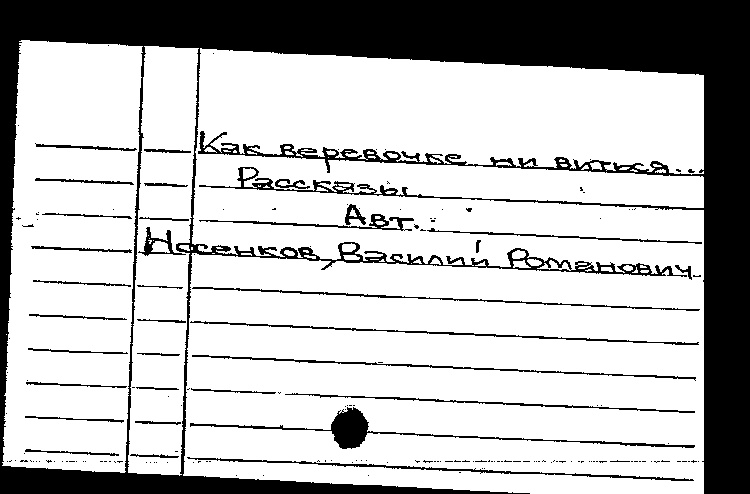 Как веревочке ни виться...
Рассказы.
Авт.:
Носенков, Василий Романович